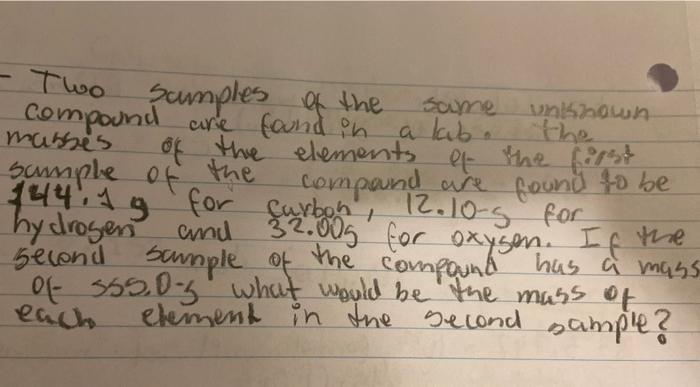 - Two samples of the same unknown
compound are found in a lab. the
masses of the elements of the first
sample of the compound are found to be
144.1 g for carbon, 12.10-g for
hydrogen and 32.00g for oxygen. If the
second sample of the compound has a mass
of 550.0-g what would be the mass of
each element in the second sample?